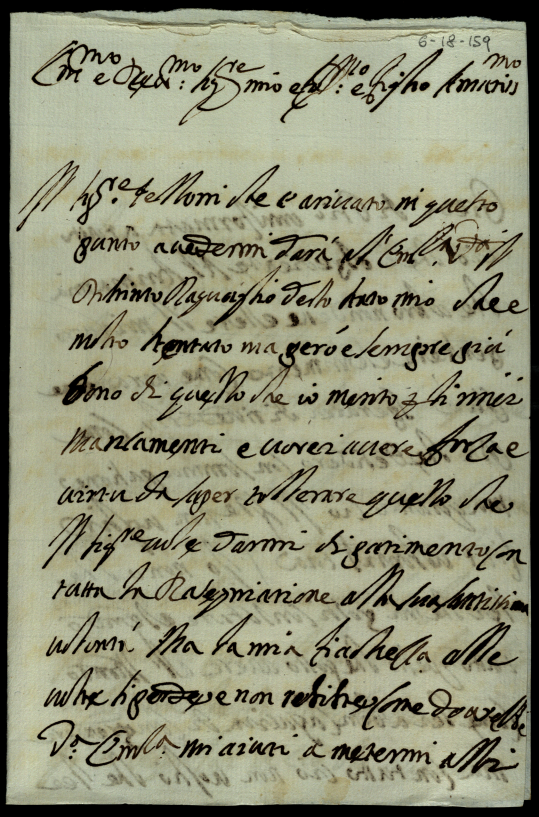 6-18-159
Em.mo e Rev.mo Sig.re mio e P.ne e figlio Amatiss.mo
Il Sig.re Telloni che è arivato in questo
punto a vedermi darà a V. Em.za Rda Il
distinto Raguaglio delo stato mio che e
molto stentato ma però è sempre più
bono di quello che io merito p li miei
mancamenti e vorei avere forza e
virtu da saper tollerare quello che
Il Sig.re vole darmi di patimento con
tutta la Rasegniatione alla sua santissima
volontà Ma la mia fiachessa alle
volte si perde e non resiste come dovrebbe
V.a Em.za mi aiuti a metermi alli